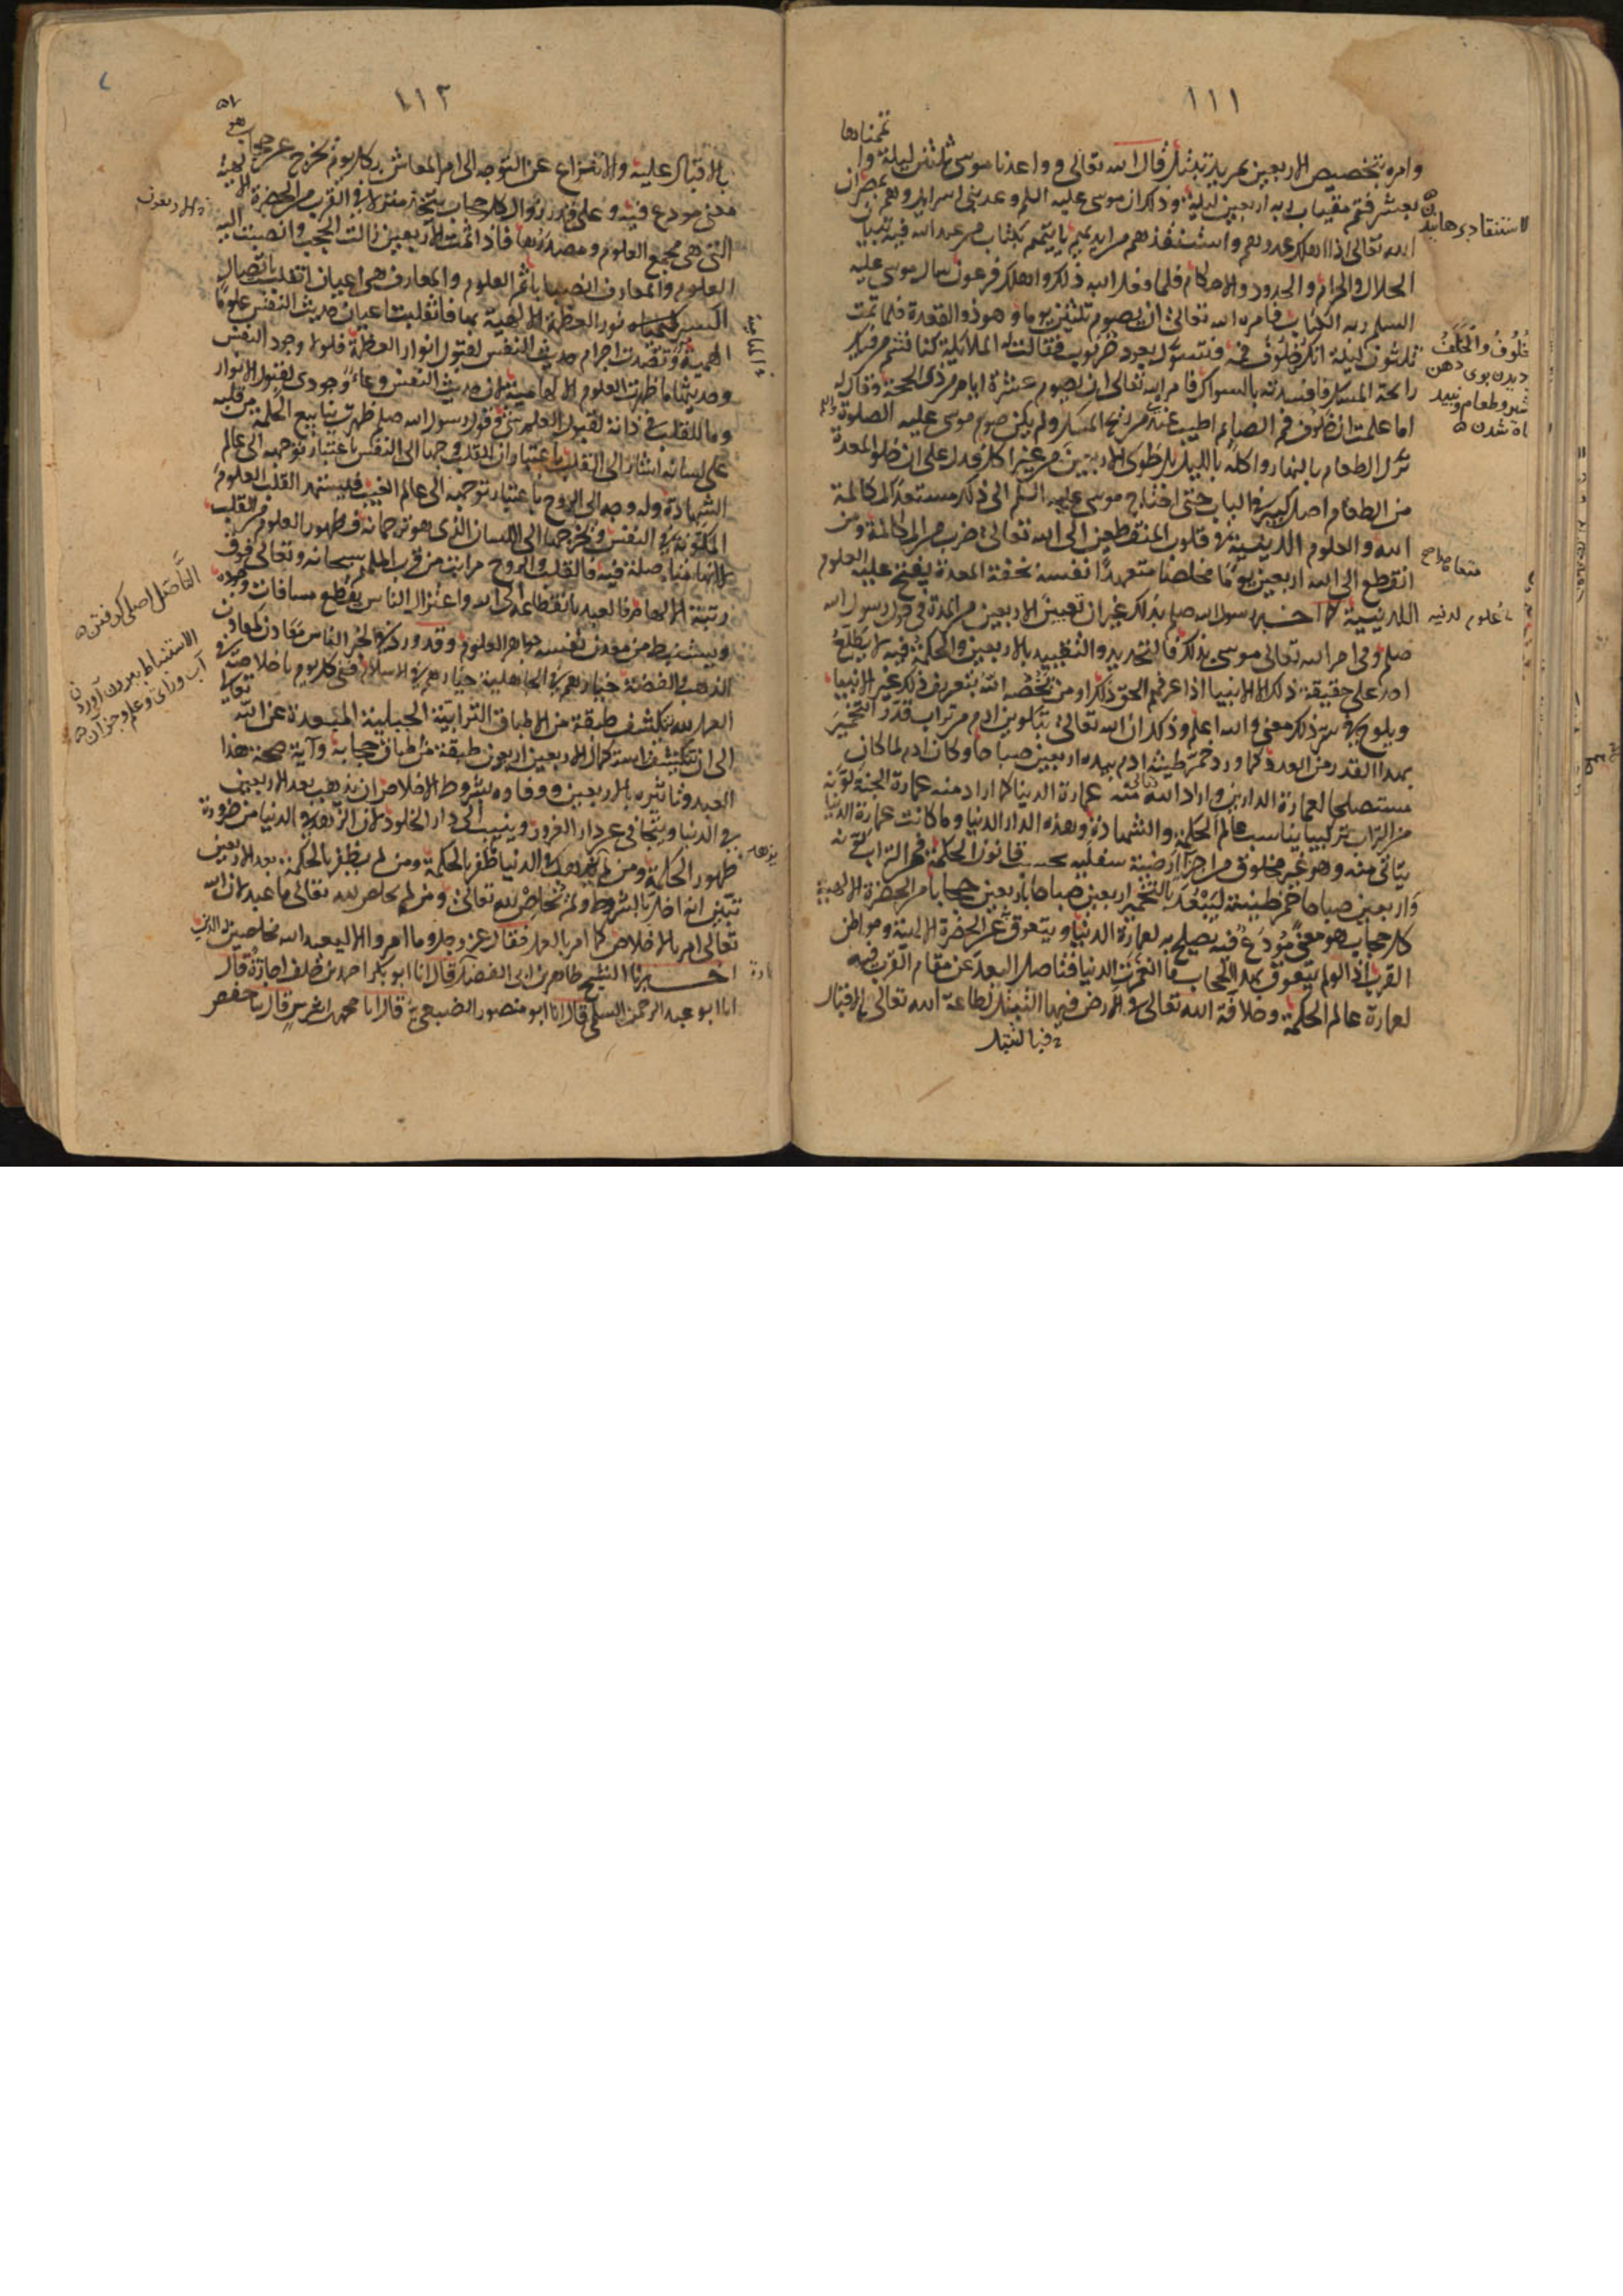 ١١١
وامره بتخصيص الاربعين بمزيد تبتل قال الله تعالى وواعدنا موسى ثلثين ليلة واتممناها
بعشر فتم ميقات ربه اربعين ليلة وذلك ان موسى عليه السلم وعد بنى اسرايل وهم بمصر ان
الله تعالى اذا اهلك عدوهم واستنقذهم من ايديهم ياتيهم بكتاب من عند الله فيه تبيان
الحلال والحرام والحدود والاحكام فلما فعل الله ذلك واهلك فرعون سال موسى عليه
السلم ربه الكتاب فامره الله تعالى ان يصوم ثلثين يوما وهو ذو القعدة فلما تمت
ثلثون ليلة انكر خلوف فمه فتسوك بعود خرنوب فقالت له الملايكة كنا نشم من فيك
رائحة المسك فافسدته بالسواك فامره الله تعالى ان يصوم عشرة ايام من ذى الحجة وقال له
اما علمت ان خلوف فم الصايم اطيب عندى من ريح المسك ولم يكن صوم موسى عليه الصلوة والسلم
ترك الطعام بالنهار واكله بالليل بل طوى الاربعين من غير اكل فدل على ان خلو المعدة
من الطعام اصل كبير فى الباب حتى احتاج موسى عليه السلم الى ذلك مستعدا لمكالمة
الله والعلوم اللدنية فى قلوب المنقطعين الى الله تعالى ضرب من المكالمة ومن
انقطع الى الله اربعين يوما مخلصا متعهدا نفسه بخفة المعدة يفتح عليه العلوم
اللدنية كما اخبر رسول الله صلعم بذلك غير ان تعيين الاربعين من المدة فى قول رسول الله
صلعم وفى امر الله تعالى موسى بذلك فالتحديد والتقييد بالاربعين والحكمة فيه لا يطلع
احد على حقيقة ذلك الا الانبيا اذا عرفهم الحق ذلك او من يخصه الله بتعريف ذلك غير الانبيا
ويلوح فى سر ذلك معنى والله اعلم وذلك ان الله تعالى بتكوين ادم من تراب قدر التخمير
بهذا القدر من العدد كما ورد خمر طينة ادم بيده اربعين صباحا وكان ادم لما كان
مستصلحا لعمارة الدارين واراد الله تعالى منه عمارة الدنيا كما اراد منه عمارة الجنة كونه
من التراب تركيبا يناسب عالم الحكمة والشهادة وهذه الدار الدنيا وما كانت عمارة الدنيا
يتاتى منه وهو غير مخلوق من اجزا ارضية سفلية بحسب قانون الحكمة فمن التراب كونه
واربعين صباحا خمر طينته ليبعد بالتخمير اربعين صباحا باربعين حجابا من الحضرة الالهية
كل حجاب هو معنى مودع فيه يصلح به لعمارة الدنيا ويتعوق عن الحضرة الالهية ومواطن
القرب اذ لو لم يتعوق بهذا الحجاب ما انعمرت الدنيا فتاصل البعد عن مقام القرب فيه
لعمارة عالم الحكمة وخلافة الله تعالى فى الارض فيها التبتل لطاعة الله تعالى والاقبال
فبالتبتل
استنقاد برهانيدن
خلوف والخلف
ديدن بوى دهن
شير وطعام ونبيد
علوم لدنيه
١١٣
بالاقبال عليه والانتزاع عن التوجه الى امر المعاش بكل يوم يخرج عن حجاب هو
معنى مودع فيه وعلى قدر زوال كل حجاب يتخذ منزلا فى القرب من الحضرة الالهية
التى هى مجمع العلوم ومصدرها فاذا تمت الاربعين زالت الحجب وانصبت اليه
العلوم والمعارف انصبابا ثم العلوم والمعارف هى اعيان انقلبت باتصال
نور العظمة الالهية بها فانقلبت اعيان حديث النفس علوما
الهامية وتصدت اجرام حديث النفس لقبول انوار العظمة فلولا وجود النفس
وحديثها ما ظهرت العلوم الالهامية لان حديث النفس وعاء وجودى لقبول الانوار
وما للقلب فى ذاته لقبول العلم شى وقول رسول الله صلعم ظهرت ينابيع الحكمة من قلبه
على لسانه اشار الى القلب باعتبار ان للقلب وجها الى النفس باعتبار توجهه الى عالم
الشهادة وله وجه الى الروح باعتبار توجهه الى عالم الغيب فيستمد القلب العلوم
المكنونة فى النفس ويخرجها الى اللسان الذى هو ترجمانه فظهور العلوم من القلب
لانها متاصلة فيه فالقلب والروح مراتب من قرب الملهم سبحانه وتعالى فوق
رتبة الالهام فالعبد بانقطاعه الى الله واعتزال الناس يقطع مسافات وجوده
ويستنبط من معدن نفسه جواهر العلوم وقد ورد فى الخبر الناس معادن كمعادن
الذهب والفضة خيارهم فى الجاهلية خيارهم فى الاسلام ففى كل يوم باخلاصه فى
العمل لله تعالى يكشف طبقة من الاطباق الترابية الجبلية المبعدة عن الله
الى ان تنكشف باستكمال الاربعين اربعون طبقة من اطباق حجابه وآية صحة هذا
العبد وتاثيره بالاربعين ووفاوه بشروط الاخلاص ان يزهد بعد الاربعين
فى الدنيا ويتجافى عن دار الغرور وينيب الى دار الخلود لان الزهد فى الدنيا من ضرورة
ظهور الحكمة ومن لم يزهد فى الدنيا ما ظفر بالحكمة ومن لم يظفر بالحكمة بعد الاربعين
تبين انه اخل بالشروط ولم يخلص لله تعالى ومن لم يخلص لله تعالى ما عبد لان الله
تعالى امر بالاخلاص كما امر بالعمل فقال عز وجل وما امروا الا ليعبدوا الله مخلصين له الدين
اخبرنا الشيخ طاهر بن ابى الفضل قال انا ابو بكر احمد بن خلف اجازة قال
انا ابو عبد الرحمن السلمى قال انا ابو منصور الضبعى قال انا محمد بن اشرس قال ثنا حفص
التأصل اصلى گرفتن
الاستنباط بيرون آوردن
آب وراى وعلم وجز آن